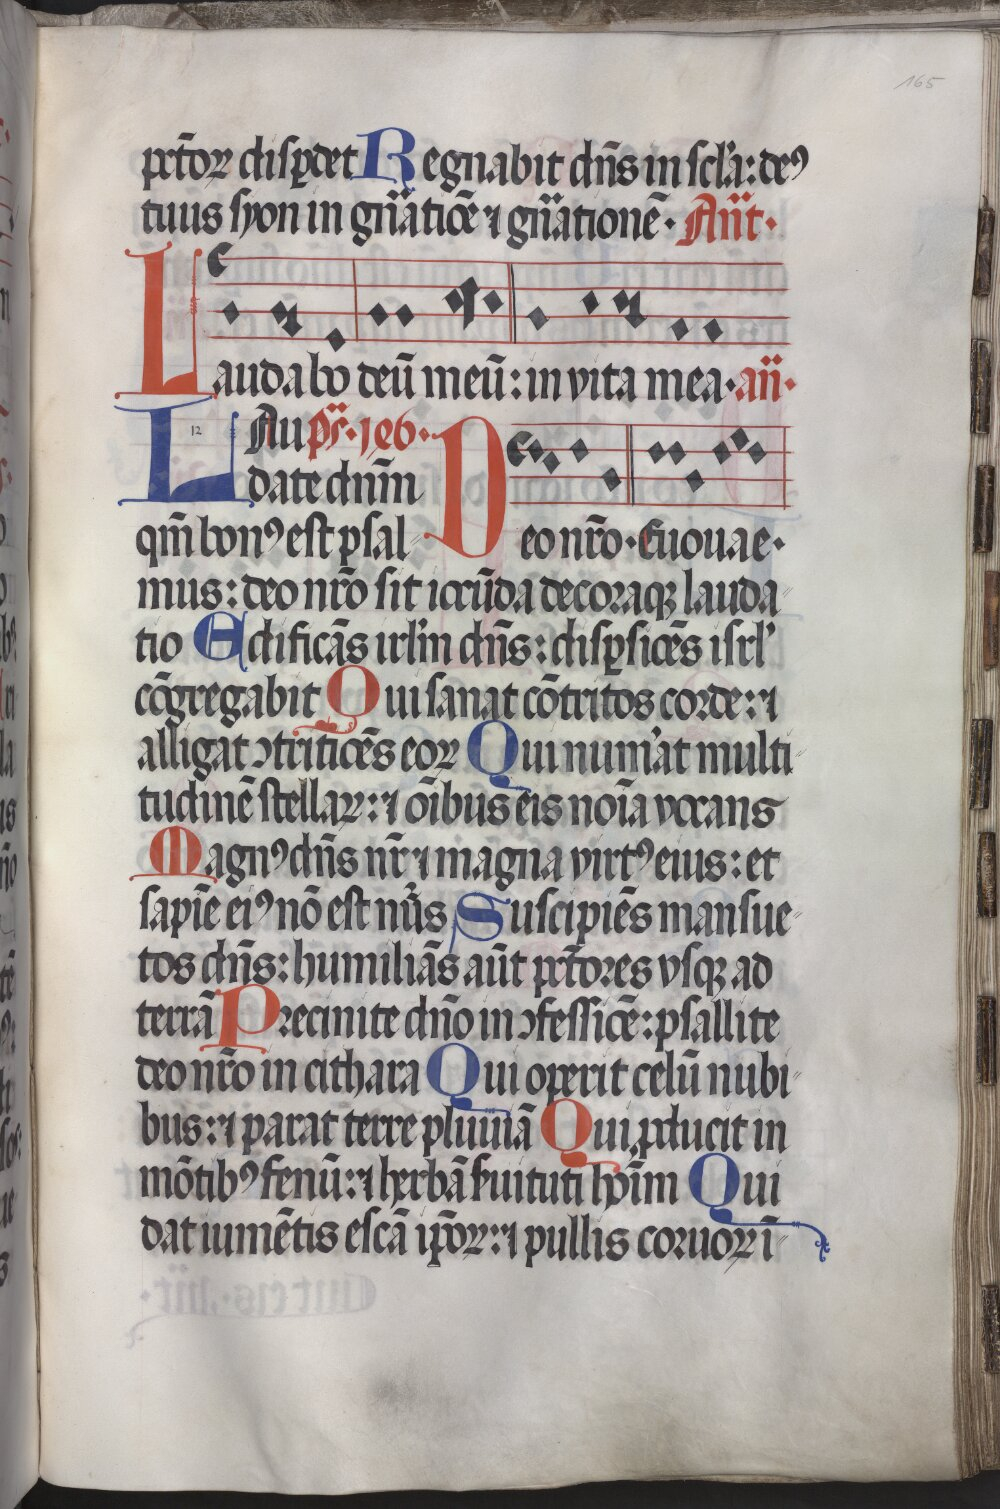 165
pctōꝝ disꝑdet Regnabit dn̄s in scl̓a: deꝰ
tuus syon in gn̄atiōe ⁊ gn̄ationē. Añt.
Laudabo deū meū: in vita mea. añ.
Lau ps. 146. Deo nr̄o. Euouae.
12
date dnm̄
qm̄ bonꝰ est psal
mus: deo nr̄o sit iocūda decoraqꝫ lauda
tio Edificās irl̓m dn̄s: disꝑsiōes isrl̓
cōgregabit Qui sanat cōtritos corde: ⁊
alligat ꝯtritiōes eoꝝ Qui num̓at multi
tudinē stellaꝝ: ⁊ oībus eis noīa vocans
Magnꝰ dn̄s nr̄ ⁊ magna virtꝰ eius: et
sapīe eiꝰ nō est nūs Suscipiēs mansue
tos dn̄s: humiliās aūt pctōres vsqꝫ ad
terrā Precinite dn̄o in ꝯfessiōe: psallite
deo nr̄o in cithara Qui operit celū nubi
bus: ⁊ parat terre pluuiā Qui ꝓducit in
mōtibꝰ fenū: ⁊ herbā ẜuituti hoīm Qui
dat iumētis escā ip̄oꝝ: ⁊ pullis coruoꝝ ī